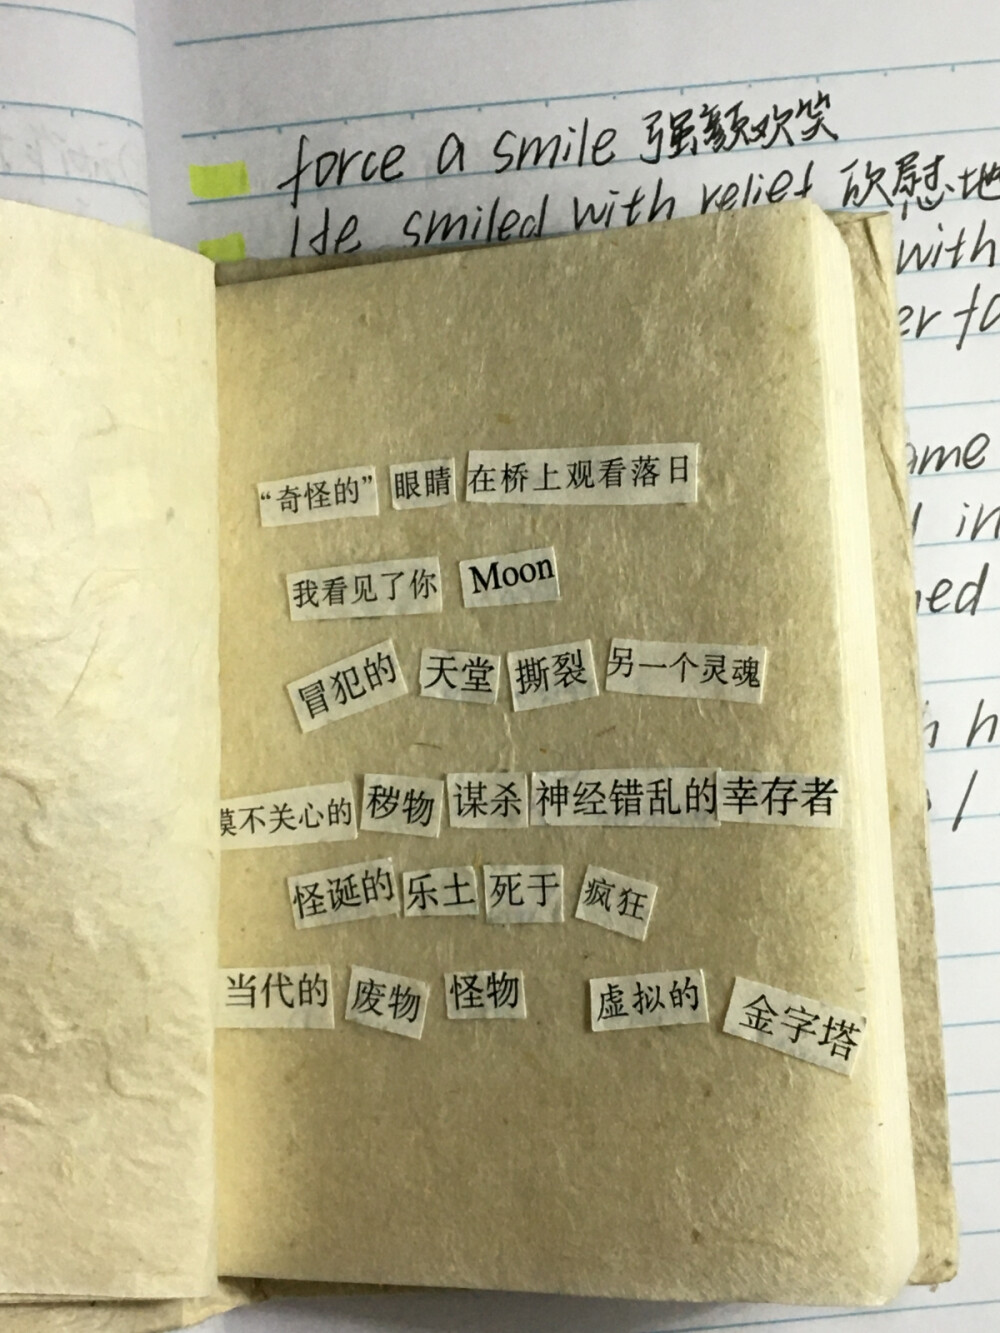 force a smile 强颜欢笑
He smiled with relief 欣慰地
with
“奇怪的” 眼睛 在桥上观看落日
我看见了你 Moon
冒犯的 天堂 撕裂 另一个灵魂
漠不关心的 秽物 谋杀 神经错乱的 幸存者
怪诞的 乐土 死于 疯狂
当代的 废物 怪物 虚拟的 金字塔